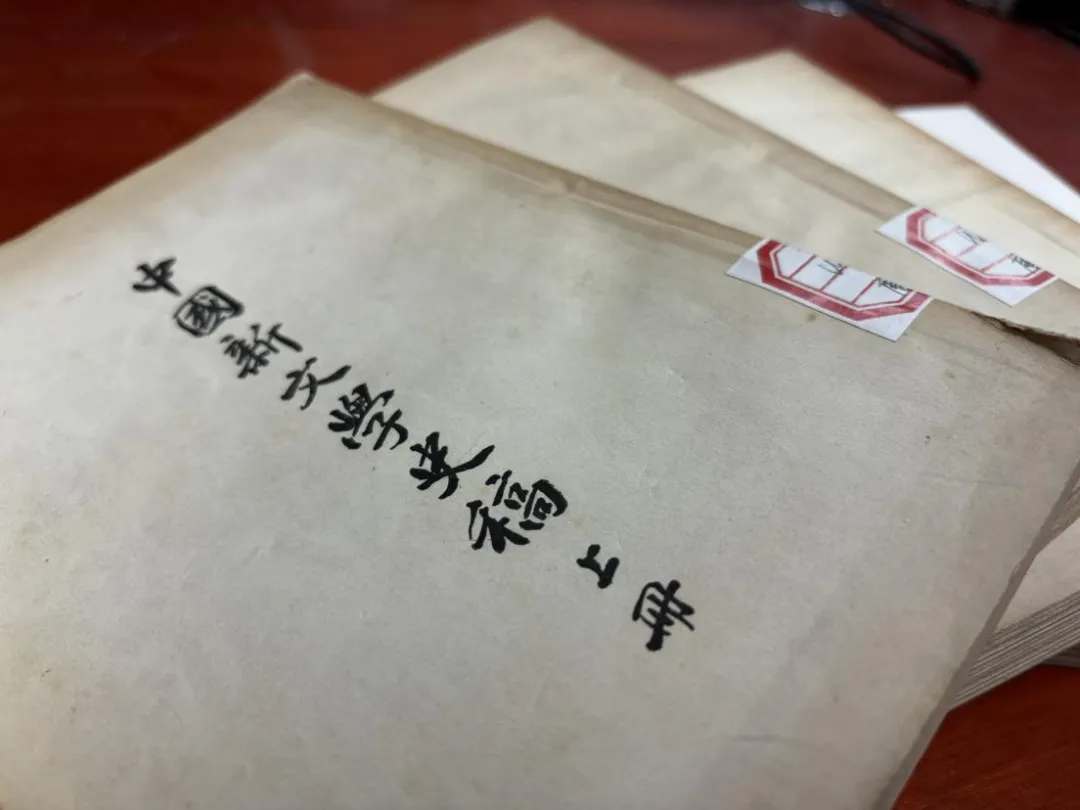 中國新文學史稿 上冊